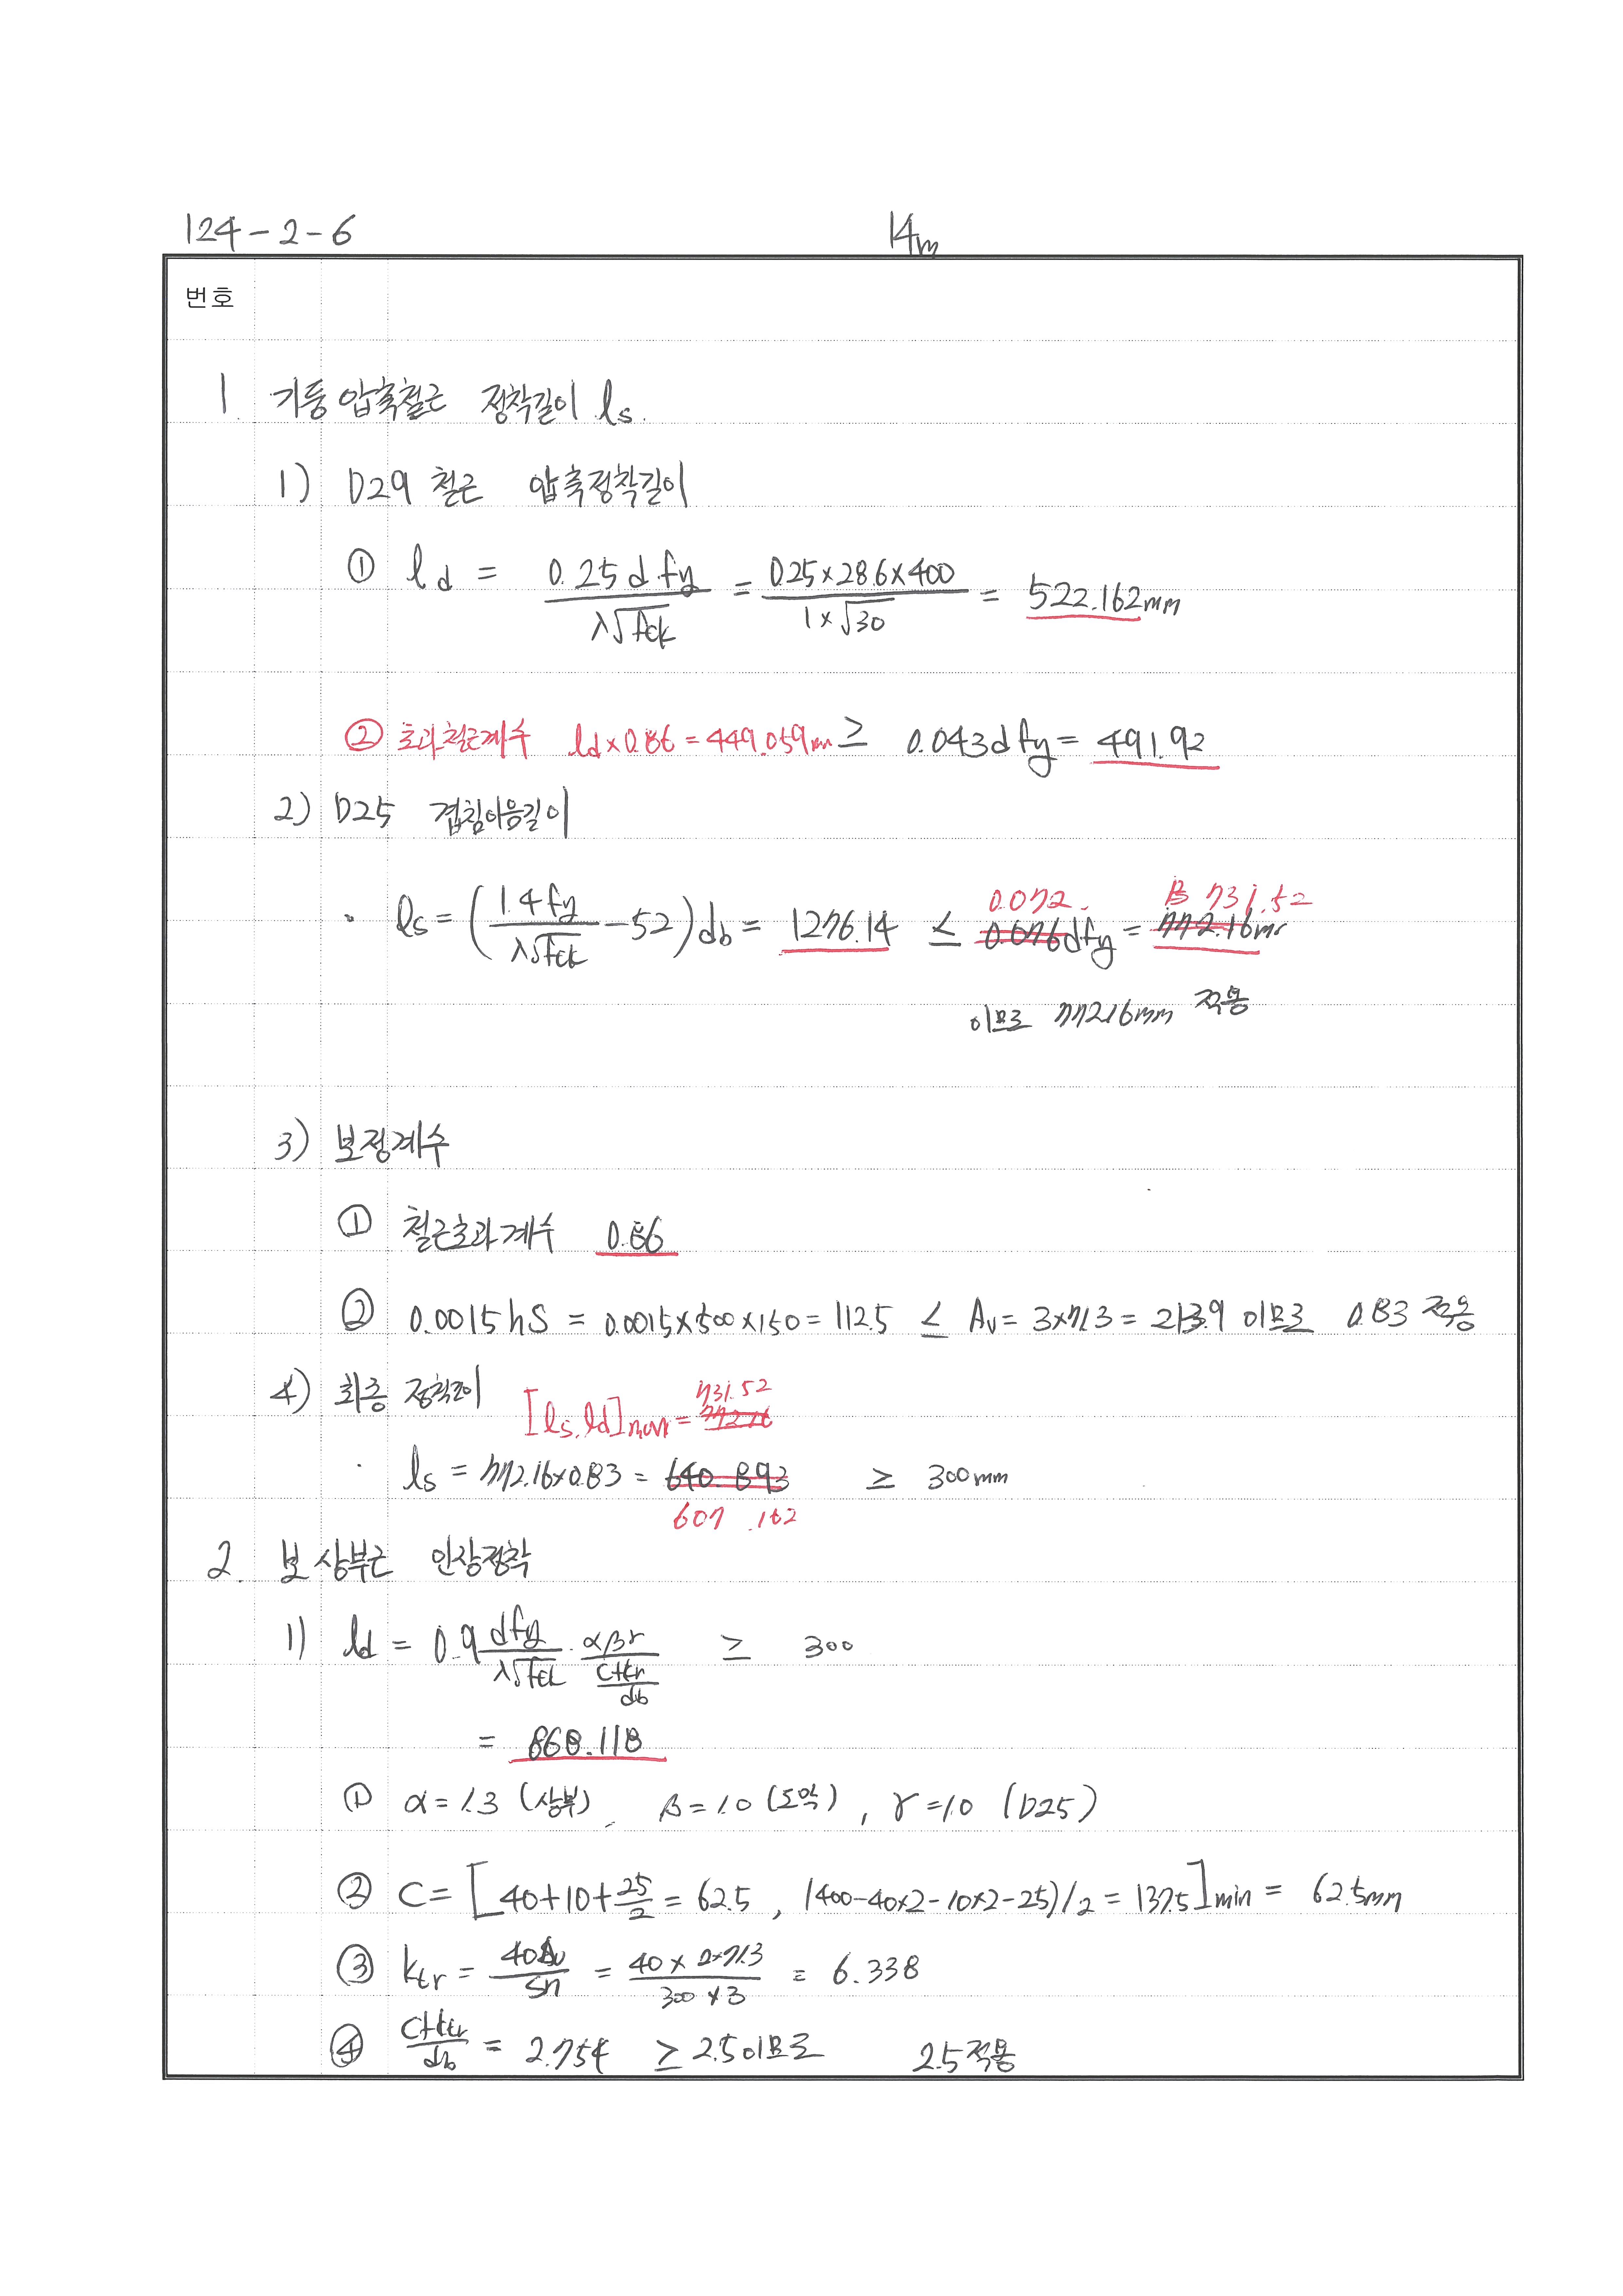 124-2-6 14m
번호
1. 기둥 압축철근 정착길이 ls.
1) D29 철근 압축정착길이
① ld = 0.25 d fy / λ√fck = 0.25×28.6×400 / 1×√30 = 522.162mm
② 초과철근계수 ld×0.86 = 449.059mm ≥ 0.043dfy = 491.92
2) D25 겹침이음길이
· ls = (1.4fy / λ√fck - 52)db = 1276.14 ≤ 0.076dfy = 772.16mm
0.072. 731.52
이므로 772.16mm 적용
3) 보정계수
① 철근초과계수 0.86
② 0.0015hS = 0.0015×500×150 = 112.5 ≤ Av = 3×71.3 = 213.9 이므로 0.83 적용
4) 최종 정착길이 [ls, ld]max = 772.16
731.52
· ls = 772.16×0.83 = 640.893 ≥ 300mm
607.162
2. 보 상부근 인장정착
1) ld = 0.9 dfy / λ√fck · αβγ / (c+ktr / db) ≥ 300
= 868.118
① α=1.3 (상부), β=1.0 (도막), γ=1.0 (D25)
② C = [40+10+25/2 = 62.5, (400-40×2-10×2-25)/2 = 137.5]min = 62.5mm
③ ktr = 40Av / sn = 40×2×71.3 / 300×3 = 6.338
④ c+ktr / db = 2.754 ≥ 2.5이므로 2.5적용